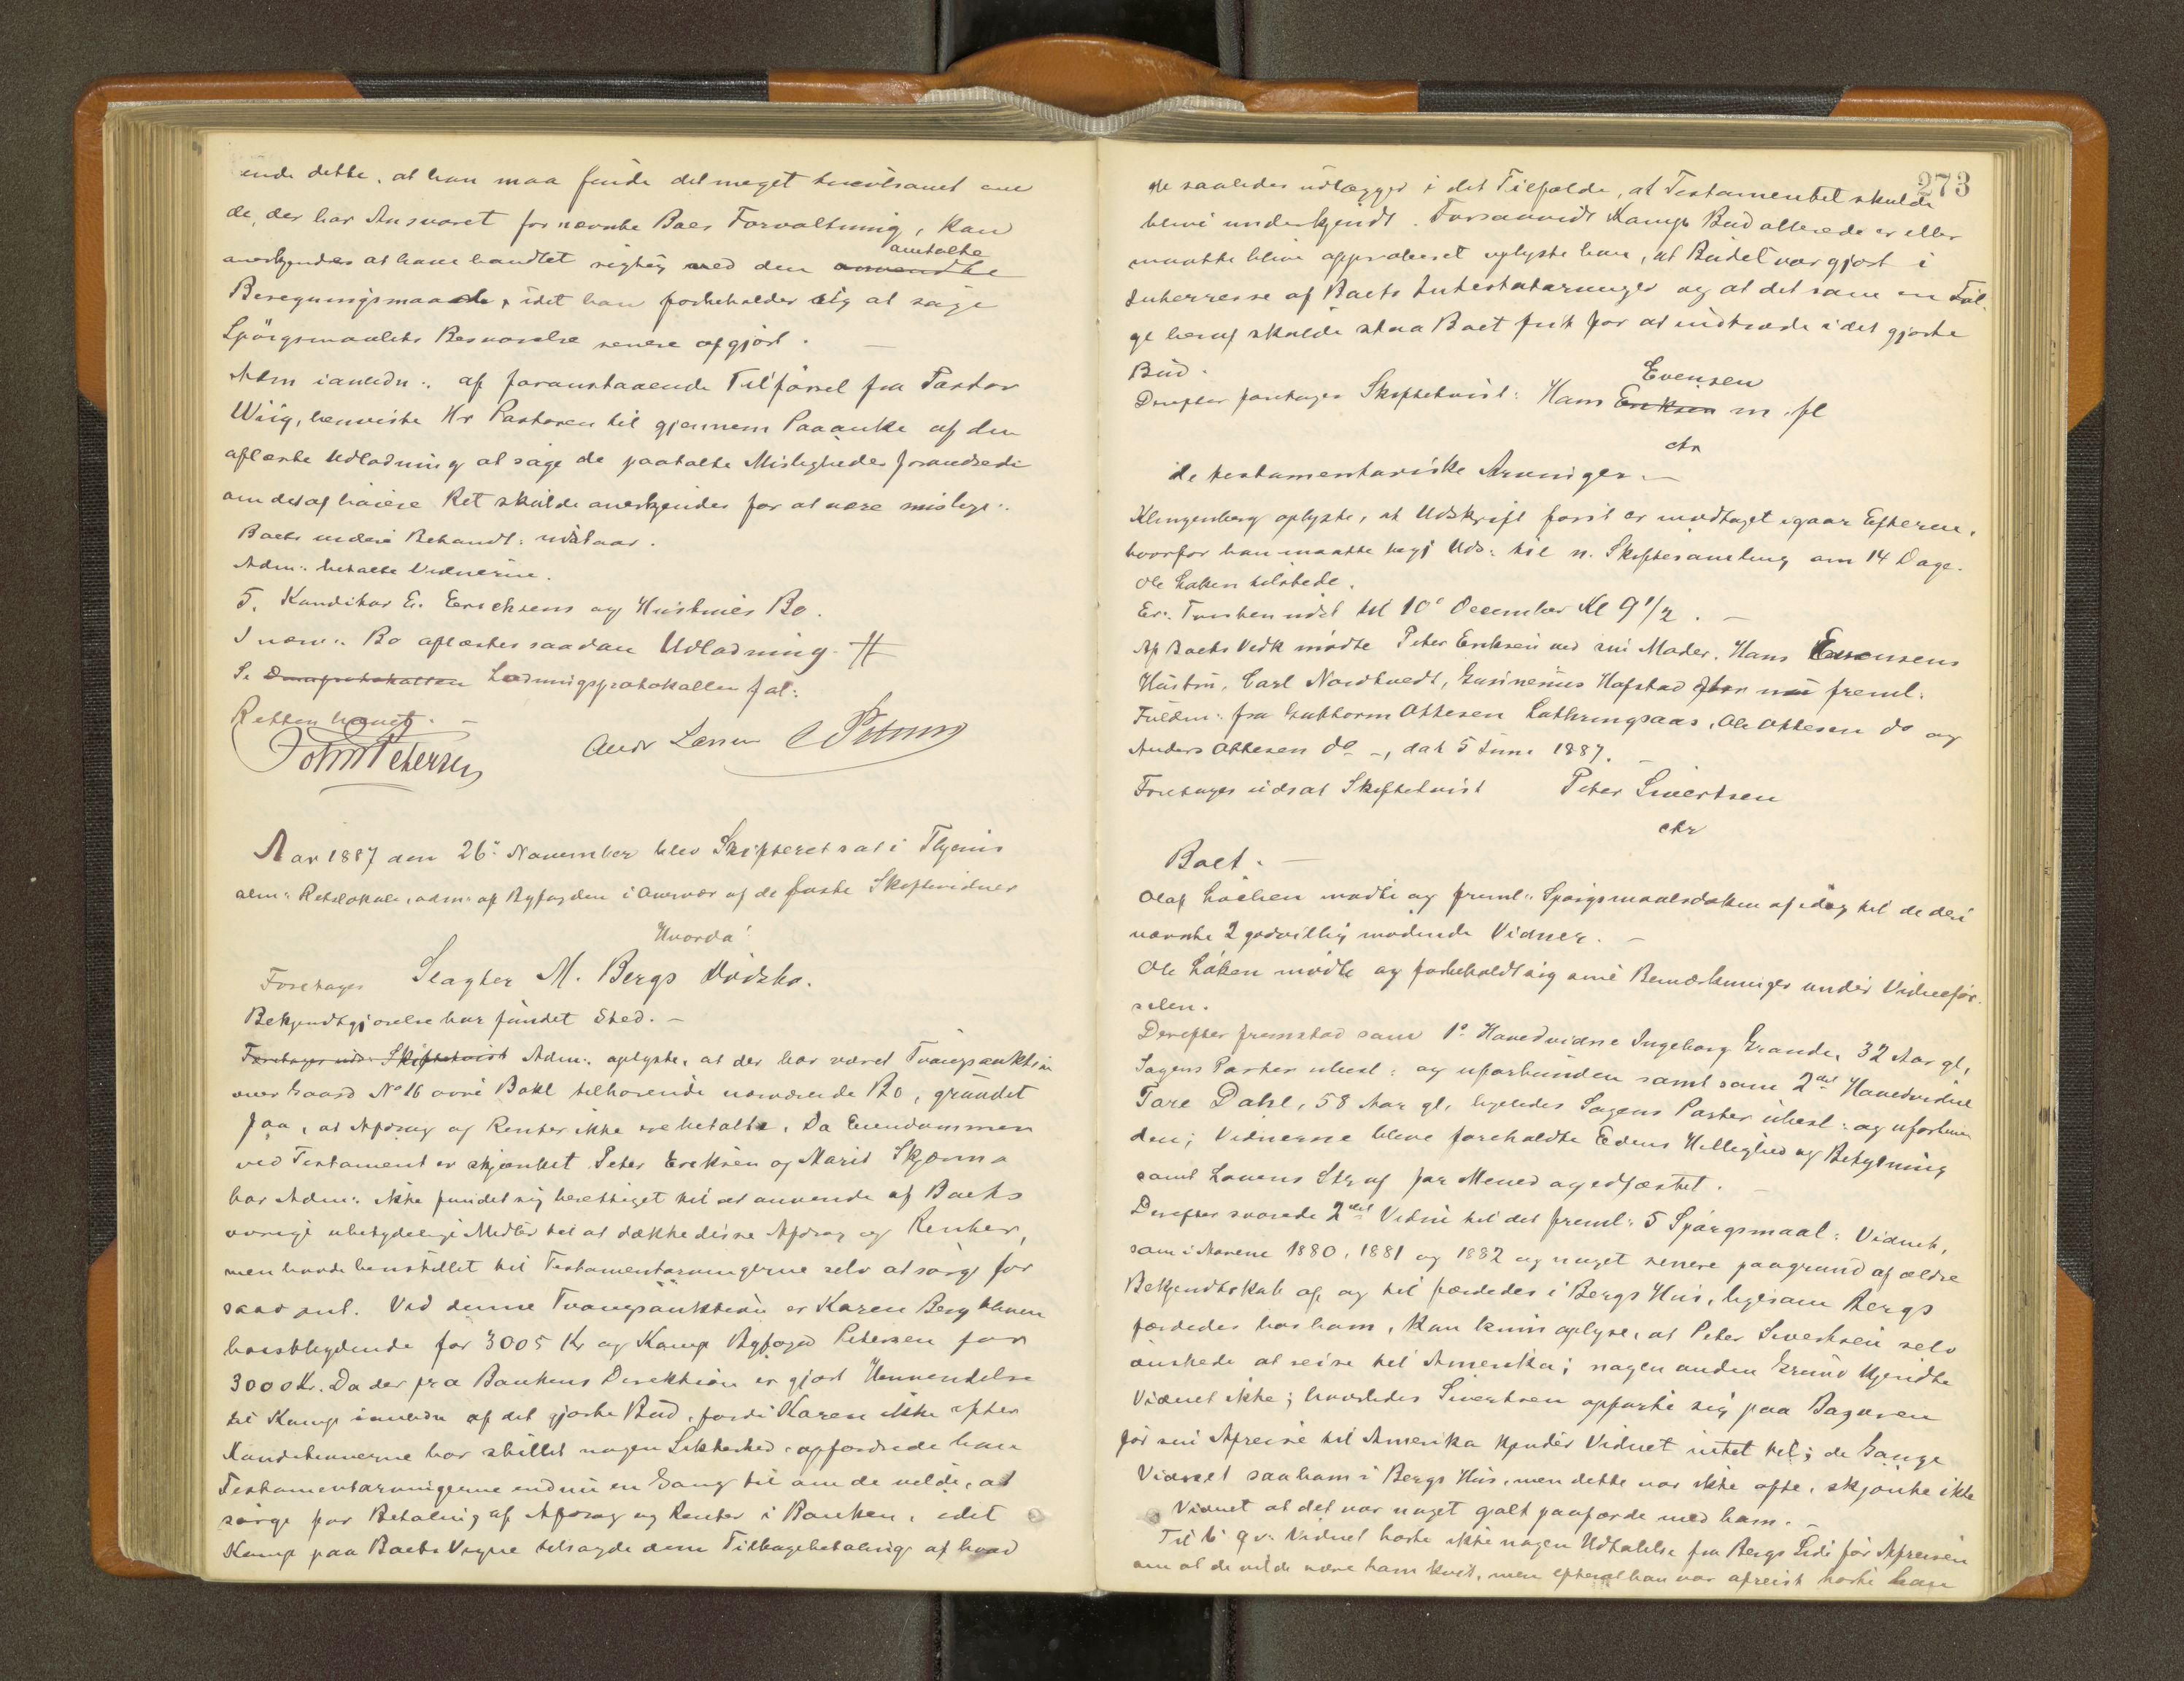 ende dette, at han maa finde det meget tvivlsomt om
de, der har Ansvaret for nævnte Boes Forvaltning, kan
anerkjendes at have handlet rigtig ved den anvendte omtalte
Beregningsmaade, idet han forbeholder sig at søge
Spörgsmaalets Besvarelse senere afgjort. —
Adm ianledn: af foranstaaende Tilførsel fra Pastor
Wiig, henviste Hr Pastoren til gjennem Paaanke af den
aflæste Udlodning at søge de paatalte Misligheder forandrede
om det af høiere Ret skulde anerkjendes for at være mislige.
Boets videre Behandl: udstaar.
Adm: betalte Vidnerne.
F. Konditor E. Erichsens og Hustrues Bo.
I nævn: Bo aflæstes saadan Udlodning #
Se Domsprotokollen Lodningsprotokollen fol:
Retten hævet. —
John Petersen Andr Larsen C Petersen
Aar 1887 den 26: November blev Skifteret sat i Thjems
alm: Retslokale, adm: af Byfogden i Overvær af de faste Skiftevidner
Hvorda:
Foretages Slagter M. Bergs Dödsbo.
Bekjendtgjørelse har fundet Sted. —
Foretages uds: Skiftetvist Adm: oplyste, at der har været Tvangsauktion
over Gaard No 16 øvre Bakl tilhørende nærværende Bo, grundet
paa, at Afdrag og Renter ikke ere betalte. Da Eiendommen
ved Testament er skjænket Peter Eriksen og Marit Skjærma
har Adm: ikke fundet sig berettiget til at anvende af Boets
øvrige ubetydelige Midler til at dække disse Afdrag og Renter,
men havde henstillet til Testamentarvingerne selv at sørge for
saadant. Ved denne Tvangsauktion er Karen Berg bleven
høistbydende for 3005 Kr og Kamp Byfoged Petersen for
3000 Kr. Da der fra Bankens Direktion er gjort Henvendelse
til Kamp ianledn af det gjorte Bud, fordi Karen ikke efter
Konditionerne har stillet nogen Sikkerhed, opfordrede han
Testamentarvingerne endnu en Gang til om de vilde, at
sørge for Betaling af Afdrag og Renter i Banken, idet
Kamp paa Boets Vegne tilsagde dem Tilbagebetaling af hvad
273
de saaledes udlægger i det Tilfælde, at Testamentet skulde
blive underkjendt. Forsaavidt Kamps Bud allerede er eller
maatte blive approberet oplyste han, at Budet var gjort i
Interresse af Boets Intestatarvinger og at det som en Føl
ge heraf skulde staa Boet frit for at indtræde i det gjorte
Bud.
Derefter foretages Skiftetvist: Hans Eriksen Evensen m. fl
ctr
de testamentariske Arvinger. —
Klingenberg oplyste, at Udskrift først er modtaget igaar Efterm.
hvorfor han maatte begj Uds: til n. Skiftesamling om 14 Dage.
Ole Løken tilstede.
Er: Tvisten udst til 10' December Kl 9 1/2. —
Af Boets Vedk mødte Peter Eriksen ved sin Moder. Hans Evensens
Hustru, Carl Nordtvedt, Gusinenus Hofstad freml.
Fuldm: fra Guttorm Ottesen Lathringsaas, Ole Ottesen do og
Anders Ottesen do —, dat 5 Juni 1887. —
Foretages udsat Skiftetvist Peter Sivertsen
ctr
Boet. —
Olaf Løchen mødte og freml: Spørgsmaalsdokum af idag til de deri
nævnte 2 godvillig mødende Vidner. —
Ole Løken mødte og forbeholdt sig sine Bemærkninger under Vidneför-
selen.
Derefter fremstod som 1° Hovedvidne Ingeborg Grande, 32 Aar gl,
Sagens Parter ubesl: og uforbunden samt som 2det Hovedvidne
Tore Dahl, 58 Aar gl, ligeledes Sagens Parter ubesl: og uforbun
den; Vidnerne bleve foreholdte Edens Hellighed og Betydning
samt Lovens Straf for Mened og edfæstet. —
Derefter svarede 2det Vidne til det freml: 5 Spørgsmaal: Vidnet,
som i Aarene 1880, 1881 og 1882 og noget senere paagrund af ældre
Bekjendtskab af og til færdedes i Bergs Hus, ligesom Bergs
færdedes hos ham, kan kun oplyse, at Peter Sivertsen selv
ønskede at reise til Amerika; nogen anden Grund kjendte
Vidnet ikke; hvorledes Sivertsen opførte sig paa Bazaren
før sin Afreise til Amerika kjender Vidnet intet til; de Gange
Vidnet saa ham i Bergs Hus, men dette var ikke ofte, skjønte ikke
Vidnet at det var noget galt paafærde med ham. —
Til 6 Qv: Vidnet hørte ikke nogen Udtalelse fra Bergs Side før Afreisen
om at de vilde være ham kvit, men efterat han var afreist hørte han